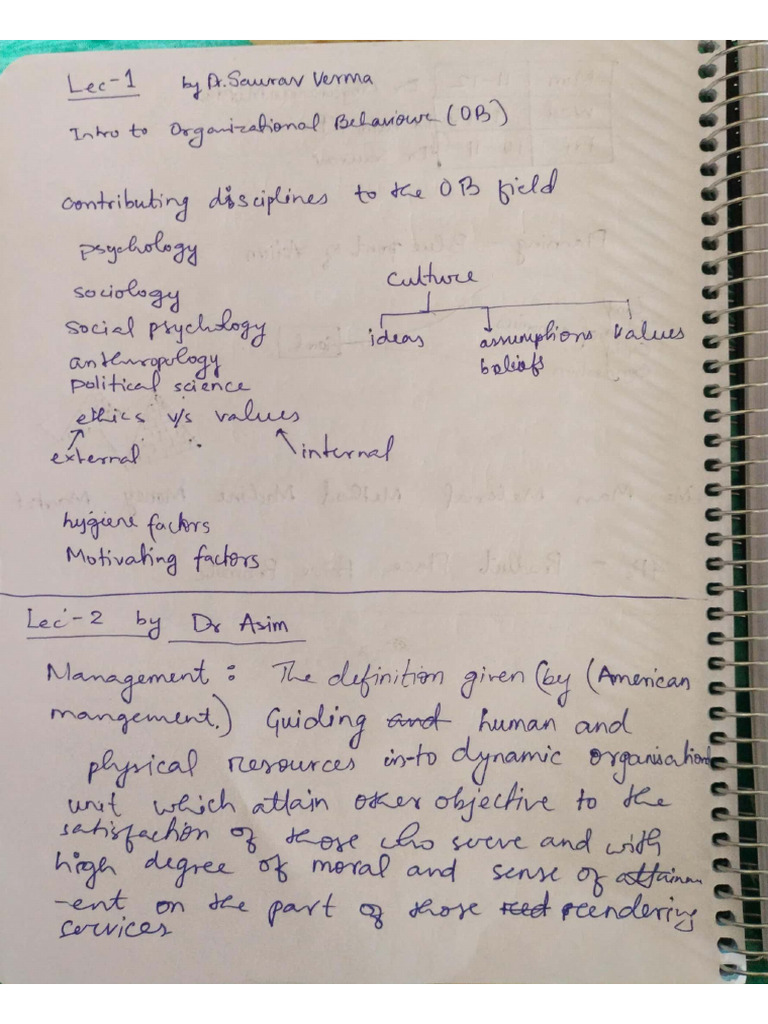 Lec-1 by Dr. Saurav Verma
Intro to Organizational Behaviour (OB)
contributing disciplines to the OB field
psychology
sociology
social psychology
anthropology
political science
ethics v/s values
external internal
culture
ideas assumptions values
beliefs
hygiene factors
Motivating factors
Lec-2 by Dr Asim
Management : The definition given (by (American
mangement.) Guiding and human and
physical resources in-to dynamic organisational
unit which attain other objective to the
satisfaction of those who serve and with
high degree of moral and sense of attainm
-ent on the part of those rendering
services